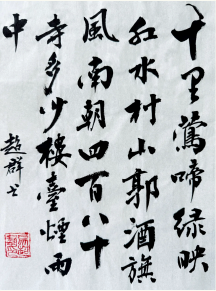 十里鶯啼綠映
紅水村山郭酒旗
風南朝四百八十
寺多少樓臺煙雨
中
超群书